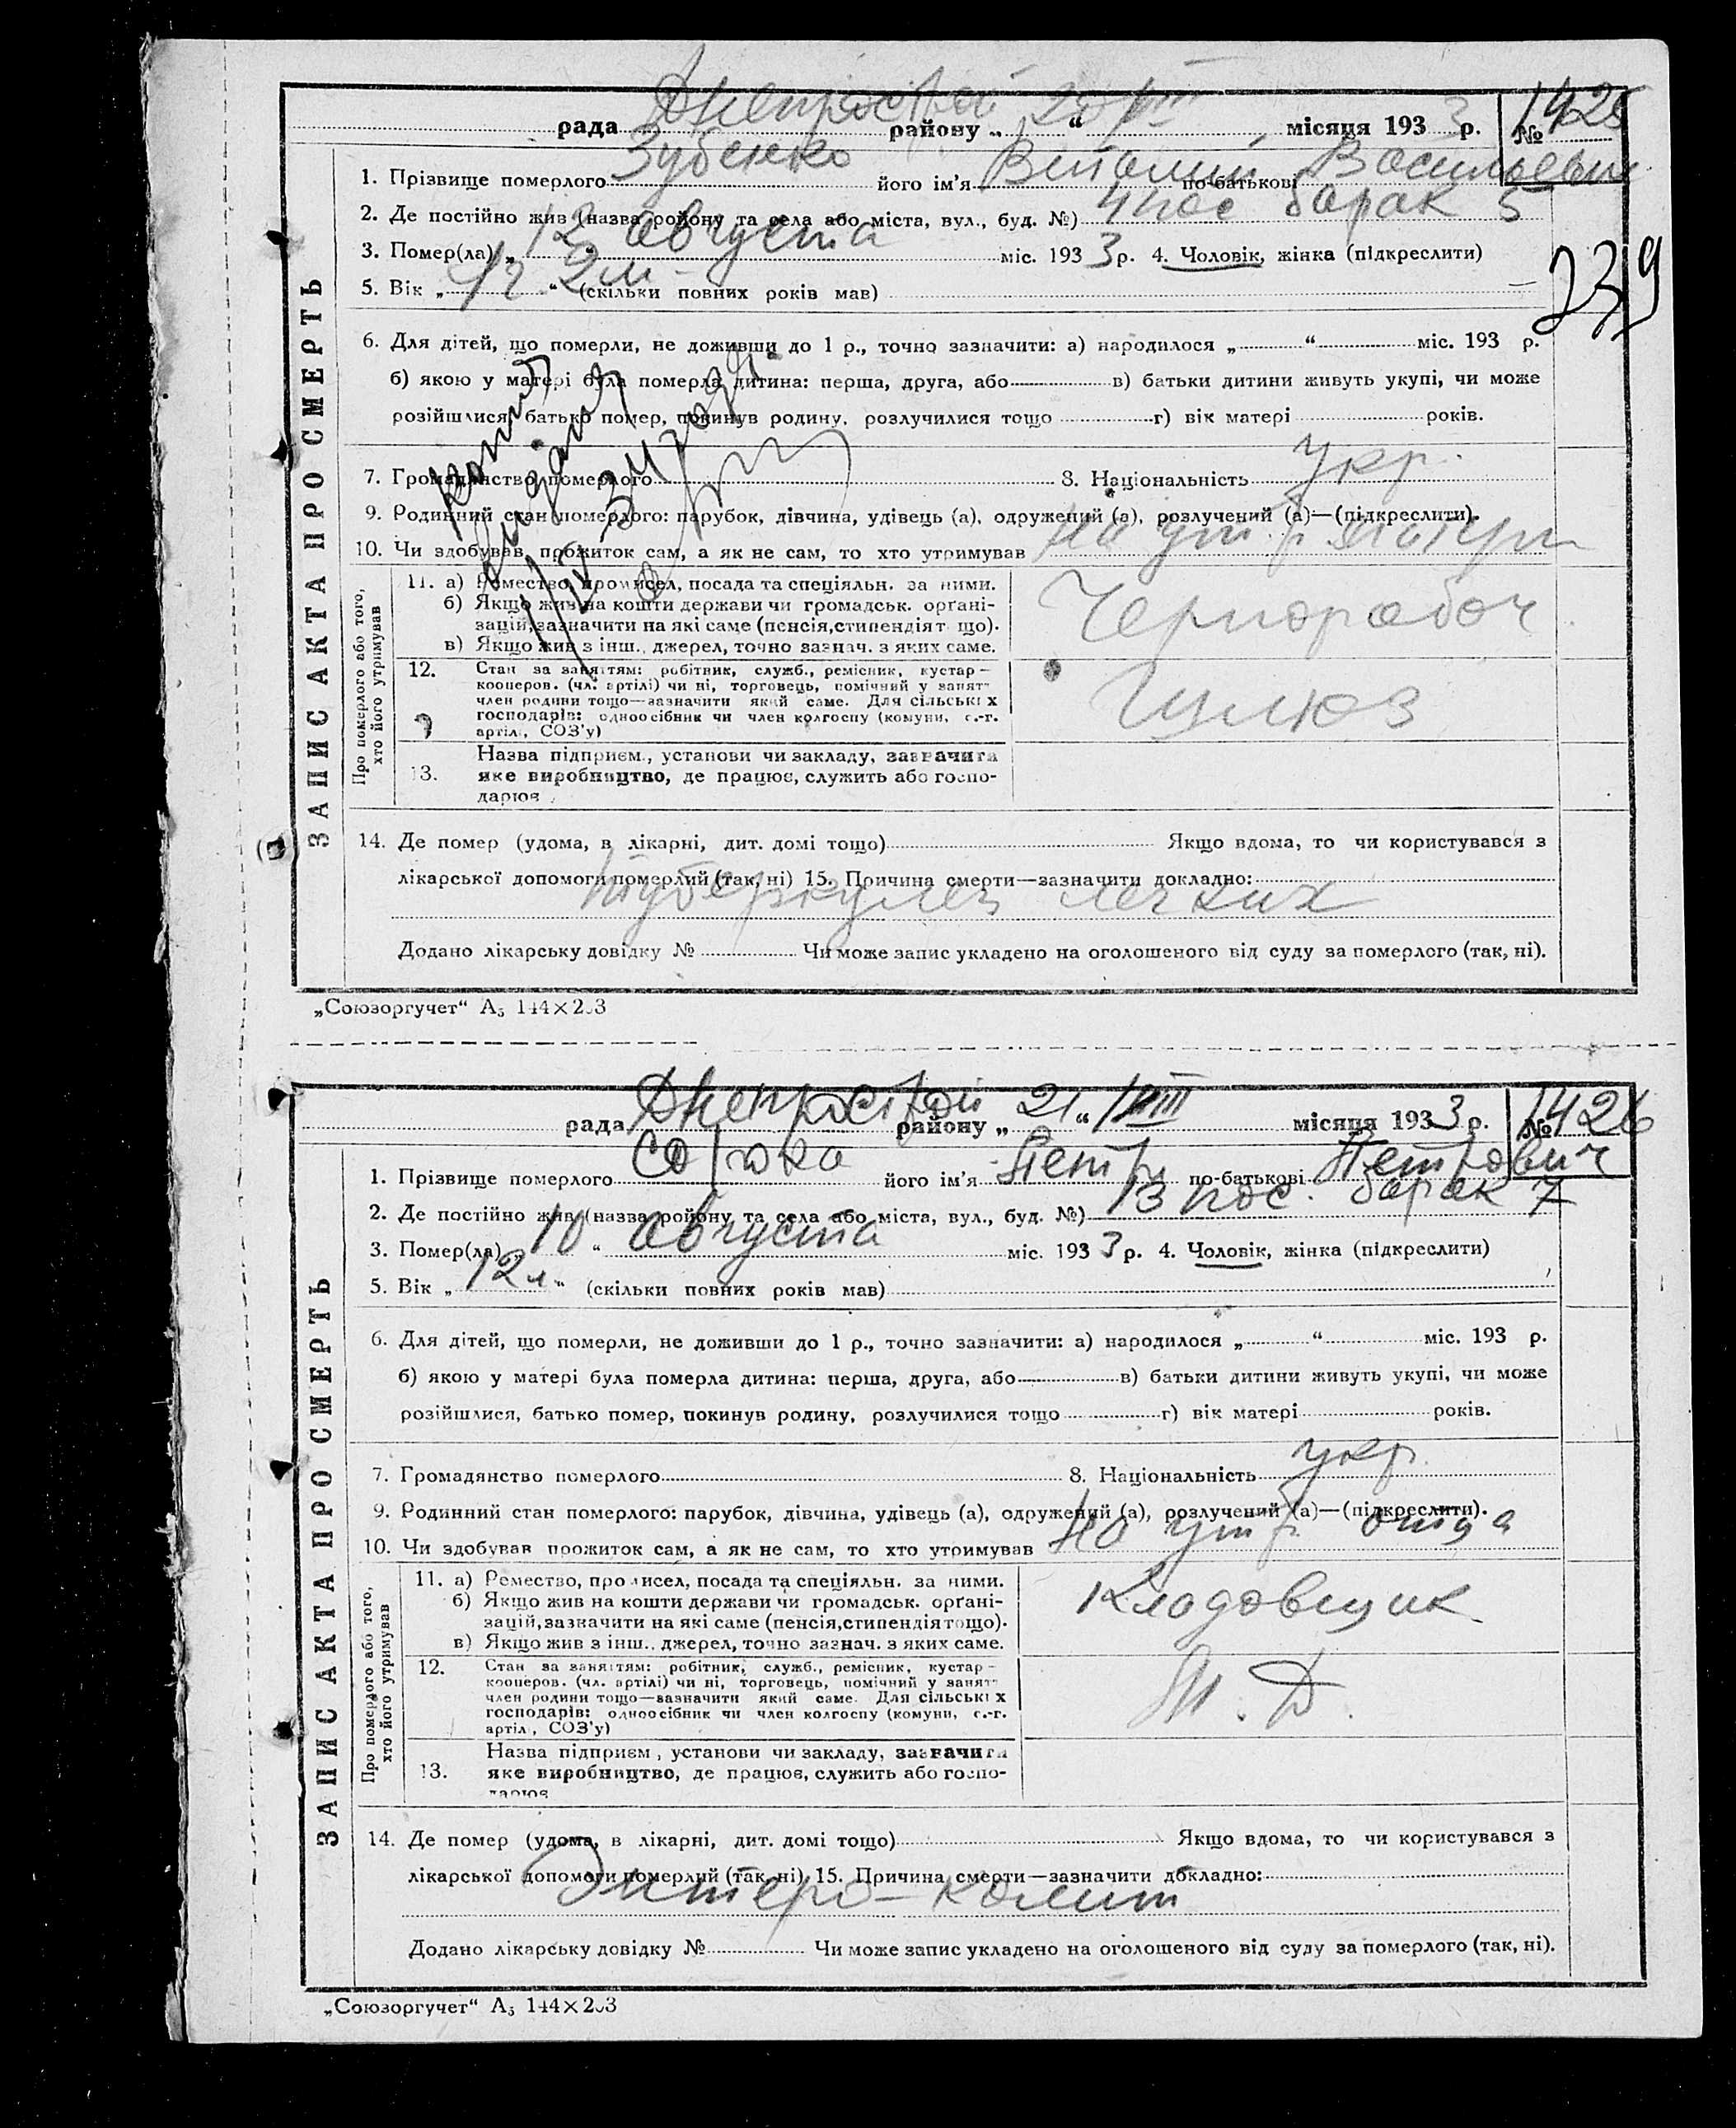 Днепрострой
рада района „ 20 “ VIII місяця 1933 р. № 1425
1. Прізвище померлого Зубенко його ім'я Виталий по-батькові Васильевич
2. Де постійно жив (назва району та села або міста, вул., буд. №) 4 пос барак 5
3. Помер(ла) „ 12 августа міс. 1933 р. 4. Чоловік, жінка (підкреслити)
239
5. Вік „ 1 г 2 м “ (скільки повних років мав)
6. Для дітей, що померли, не доживши до 1 р., точно зазначити: а) народилося „ “ міс. 193 р.
б) якою у матері була померла дитина: перша, друга, або в) батьки дитини живуть укупі, чи може
розійшлися, батько помер, покинув родину, розлучилися тощо г) вік матері років.
7. Громадянство померлого 8. Національність укр.
9. Родинний стан померлого: парубок, дівчина, удівець (а), одружений (а), розлучений (а)—(підкреслити).
10. Чи здобував прожиток сам, а як не сам, то хто утримував На утр. матери
ЗАПИС АКТА ПРО СМЕРТЬ
Про померлого або того, хто його утримував
11. а) Ремество, промисел, посада та спеціяльн. за ними.
б) Якщо жив на кошти держави чи громадськ. орґані-
зацій, зазначити на які саме (пенсія, стипендіят що).
в) Якщо жив з інш., джерел, точно зазнач. з яких саме.
Чернорабоч.
12. Стан за заняттям: робітник, служб., ремісник, кустар—
кооперов. (чл. артілі) чи ні, торговець, помічний у занят-
член родини тощо—зазначити який саме. Для сільських
господарів: одноосібник чи член колгоспу (комуни, с.-г.
артіл., СОЗ'у)
13. Назва підприєм., установи чи закладу, зазначити
яке виробництво, де працює, служить або госпо-
дарює
14. Де помер (удома, в лікарні, дит. домі тощо) Якщо вдома, то чи користувався з
лікарської допомоги померлий (так, ні) 15. Причина смерти—зазначити докладно:
туберкулез легких
Додано лікарську довідку № Чи може запис укладено на оголошеного від суду за померлого (так, ні).
„Союзоргучет“ А₅ 144×203
Днепрострой
рада району „ 21 “ VIII місяця 1933 р. № 1426
1. Прізвище померлого Сорока його ім'я Петр по-батькові Петрович
2. Де постійно жив (назва району та села або міста, вул., буд. №) 13 пос. барак 7
3. Помер(ла) „ 10 “ августа міс. 1933 р. 4. Чоловік, жінка (підкреслити)
5. Вік „ 12 л. “ (скільки повних років мав)
6. Для дітей, що померли, не доживши до 1 р., точно зазначити: а) народилося „ “ міс. 193 р.
б) якою у матері була померла дитина: перша, друга, або в) батьки дитини живуть укупі, чи може
розійшлися, батько помер, покинув родину, розлучилися тощо г) вік матері років.
7. Громадянство померлого 8. Національність укр.
9. Родинний стан померлого: парубок, дівчина, удівець (а), одружений (а), розлучений (а)—(підкреслити).
10. Чи здобував прожиток сам, а як не сам, то хто утримував На утр. отца
ЗАПИС АКТА ПРО СМЕРТЬ
Про померлого або того, хто його утримував
11. а) Ремество, промисел, посада та спеціяльн. за ними.
б) Якщо жив на кошти держави чи громадськ. орґані-
зацій, зазначити на які саме (пенсія, стипендія тощо).
в) Якщо жив з інш., джерел, точно зазнач. з яких саме.
Кладовщик
12. Стан за заняттям: робітник, служб., ремісник, кустар—
кооперов. (чл. артілі) чи ні, торговець, помічний у занят-
член родини тощо—зазначити який саме. Для сільських
господарів: одноосібник чи член колгоспу (комуни, с.-г.
артіл., СОЗ'у)
13. Назва підприєм., установи чи закладу, зазначити
яке виробництво, де працює, служить або госпо-
дарює
14. Де помер (удома, в лікарні, дит. домі тощо) Якщо вдома, то чи користувався з
лікарської допомоги померлий (так, ні) 15. Причина смерти—зазначити докладно:
Энтеро-колит
Додано лікарську довідку № Чи може запис укладено на оголошеного від суду за померлого (так, ні).
„Союзоргучет“ А₅ 144×203